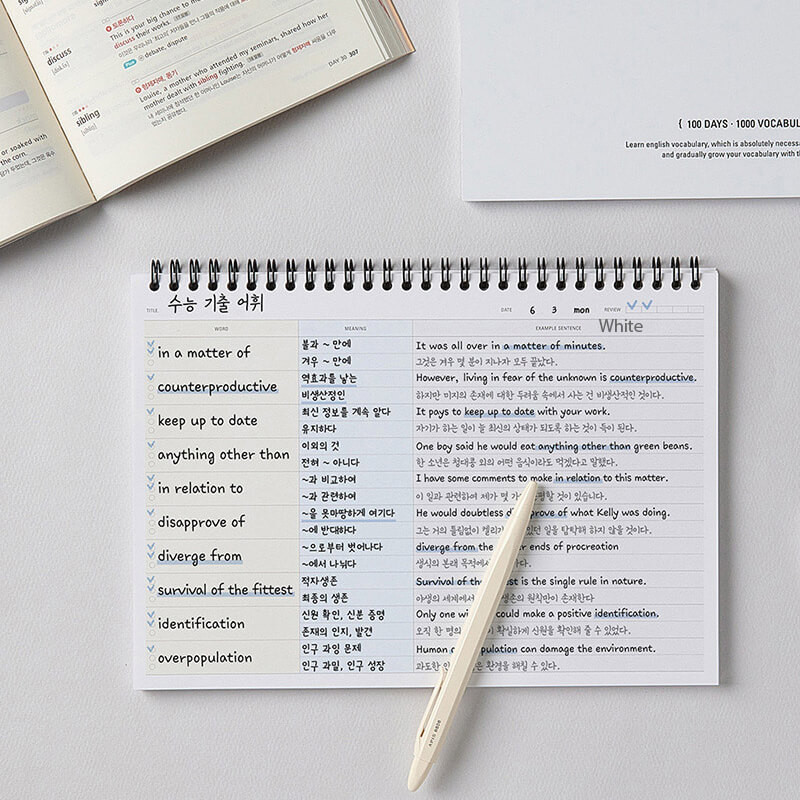 sign
discuss
sibling
도론하다
This is your big chance to m
discuss their works.
debate, dispute
형제자매, 동기
Louise, a mother who attended my seminars, shared how
mother dealt with sibling fighting.
DAY 30 307
or soaked with
the corn.
{ 100 DAYS · 1000 VOCABUL
Learn english vocabulary, which is absolutely necess
and gradually grow your vocabulary with th
TITLE 수능 기출 어휘 DATE 6 3 mon REVIEW
WORD MEANING EXAMPLE SENTENCE White
in a matter of 불과 ~ 만에 It was all over in a matter of minutes.
겨우 ~ 만에 그것은 겨우 몇 분이 지나자 모두 끝났다.
counterproductive 역효과를 낳는 However, living in fear of the unknown is counterproductive.
비생산적인 하지만 미지의 존재에 대한 두려움 속에서 사는 건 비생산적인 것이다.
keep up to date 최신 정보를 계속 알다 It pays to keep up to date with your work.
유지하다 자기가 하는 일이 늘 최신의 상태가 되도록 하는 것이 득이 된다.
anything other than 이외의 것 One boy said he would eat anything other than green beans.
전혀 ~ 아니다 한 소년은 청대콩 외의 어떤 음식이라도 먹겠다고 말했다.
in relation to ~과 비교하여 I have some comments to make in relation to this matter.
~과 관련하여 이 일과 관련하여 제가 몇 가 할 것이 있습니다.
disapprove of ~을 못마땅하게 여기다 He would doubtless prove of what Kelly was doing.
~에 반대하다 그는 거의 틀림없이 켈리가 있던 일을 탐탁해 하지 않을 것이다.
diverge from ~으로부터 벗어나다 diverge from the ends of procreation
~에서 나뉘다 생식의 본래 목적에서 다.
survival of the fittest 적자생존 Survival of the st is the single rule in nature.
최종의 생존 야생의 세계에서 생존의 원칙만이 존재한다
identification 신원 확인, 신분 증명 Only one wi could make a positive identification.
존재의 인지, 발견 오직 한 명의 확실하게 신원을 확인해 줄 수 있었다.
overpopulation 인구 과잉 문제 Human population can damage the environment.
인구 과잉, 인구 성장 과도한 인 은 환경을 해칠 수 있다.